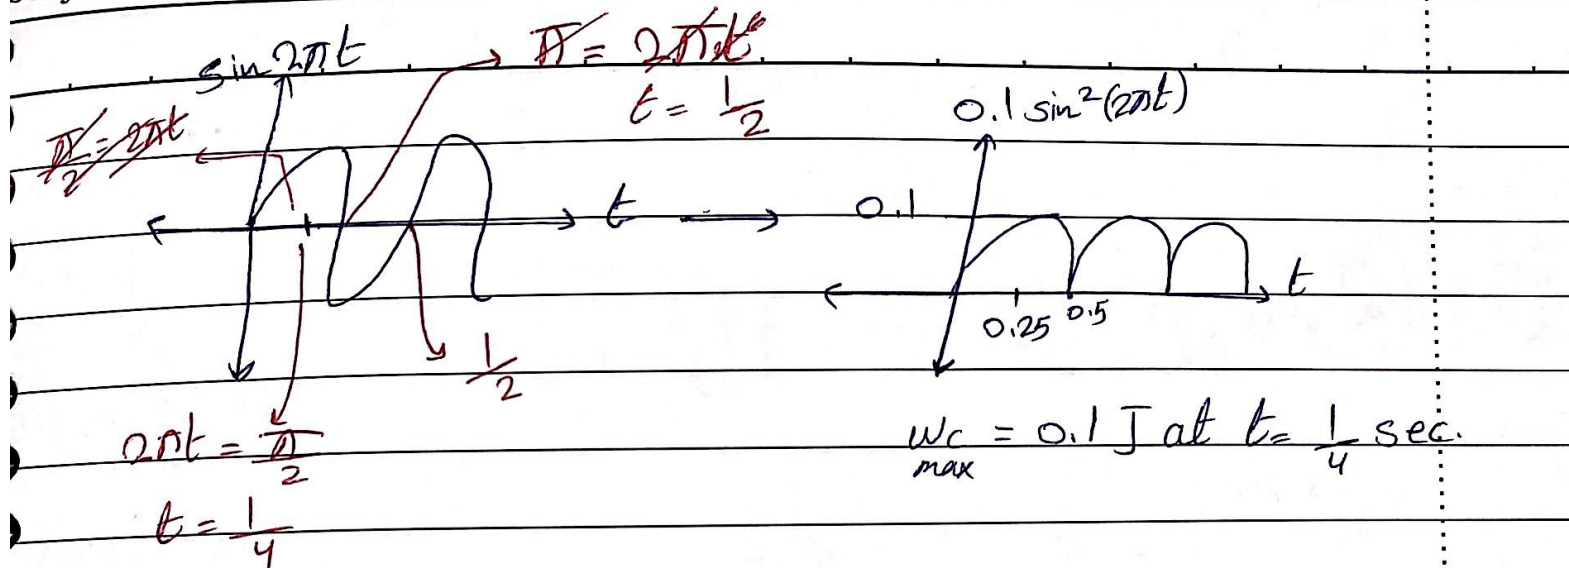 sin 2πt
π = 2πt
t = 1/2
π/2 = 2πt
t
1/2
2πt = π/2
t = 1/4
0.1 sin²(2πt)
0.1
t
0.25 0.5
wc max = 0.1 J at t = 1/4 sec.